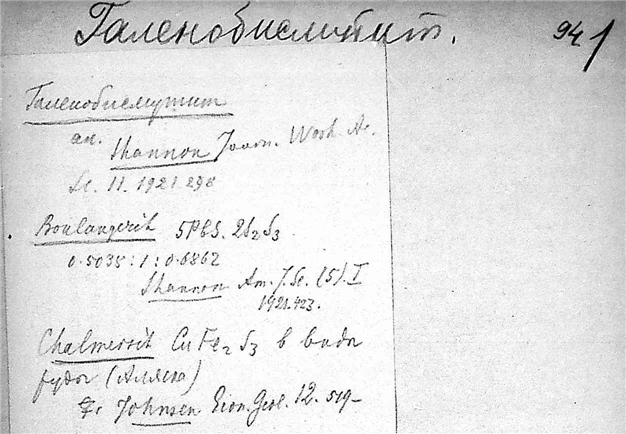 Галенобисмутит. 94
Галенобисмутит
ан. Shannon Journ. Wash. Ac.
Sc. 11. 1921. 298
Boulangerit 5PbS. 2Sb₂S₃
0.5035:1:0.6862
Shannon Am. J. Sc. (5). I
1921. 423.
Chalmersit CuFe₂S₃ в виде
руды (Аляска)
Johnson Econ. Geol. 12. 519